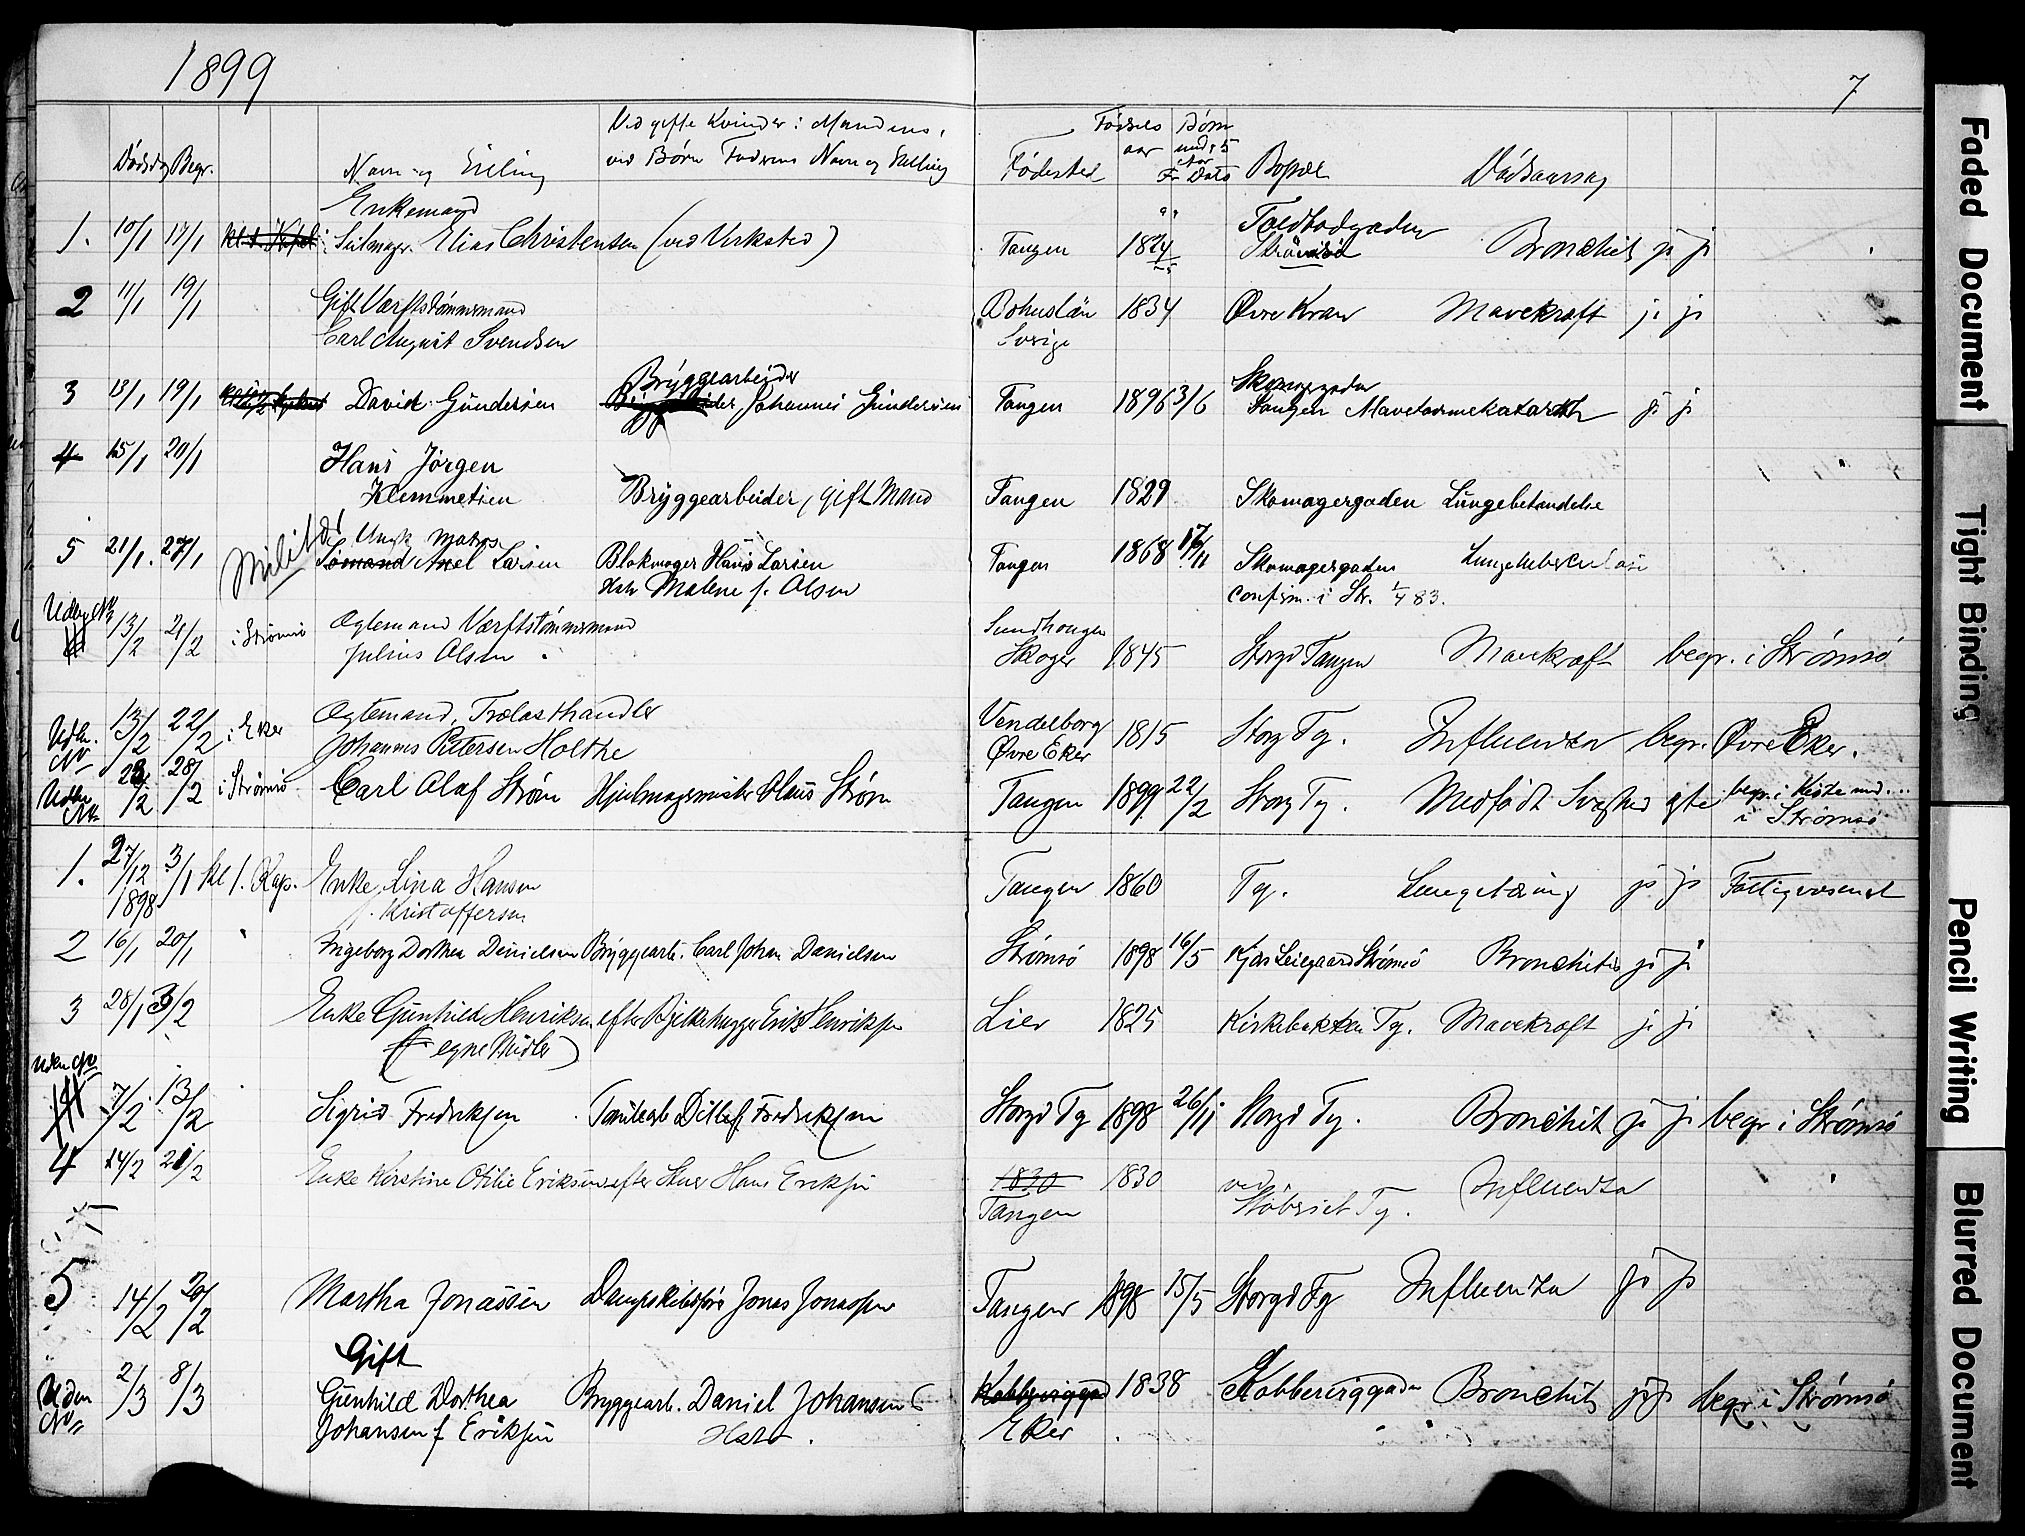 1899
7
Dødsdag Begr. Navn og Stilling Vid gifte Kvinder: Mandens, ved Børn Faderens Navn og Stilling Fødested Fødselsaar Børn under 5 Aar Bopæl Dødsaarsag
Enkemand " Toldbodgaden
1. 10/1 17/1 Seilmager Elias Christensen (ved Verksted) Tangen 1824 Strømsø Bronchit ja ja
2 11/1 19/1 Gift Værftstømmermand Bohuslän 1834 Øvre Kran Mavekræft ja ja
Carl August Svendsen Sverige
Bryggearbeider Skomagergaden
3 13/1 19/1 David Gundersen Johannes Gundersen Tangen 1896 3/6 Tangen Mavetarmekatarrh ja ja
4 15/1 20/1 Hans Jørgen
Klemmetsen Bryggearbeider, gift Mand Tangen 1829 Skomagergaden Lungebetændelse
Militær Ungk. Matros
5 21/1. 27/1 Sømand Axel Larsen Blokmager Hans Larsen Tangen 1868 17/11 Skomagergaden Lungetuberkulose
Malene f. Olsen Confirm. i Str. 1/4 83.
Uden No 13/2 21/2 i Strømsø Ægtemand Værftstømmermand Sundhaugen
Julius Olsen Skoger 1845 Storgd Tangen Mavekræft begr. i Strømsø
Uden No 13/2 22/2 i Eker Ægtemand, Trælasthandler Vendelborg 1815 Storg Tg. Influenza begr. Øvre Eker.
Johannes Pettersen Holthe Øvre Eker
Uden No 23/2 28/2 i Strømsø Carl Olaf Strøm Hjulmagermester Olaus Strøm Tangen 1899 22/2 Storg Tg. Medfødt Svaghed begr. i Kiste med ...
i Strømsø
1. 27/12 1898 3/1 kl 1. Kap. Enke Lina Hansen Tangen 1860 Tg. Lungetæring ja ja Fattigvæsenet
f. Kristoffersen
2 16/1 20/1 " Ingeborg Dorthea Danielsen Bryggearb. Carl Johan Danielsen Strømsø 1898 16/5 Strømsø Bronchitis ja ja
3 28/1 3/2 Enke Gunhild Henriksen efter Bjelkehugger Erik Henriksen Lier 1825 Kirkebakken Tg. Mavekræft ja ja
(egne Midler)
Uden No 7/2 13/2 Sigrid Fredriksen Ditlef Fredriksen Storgd Tg 1898 26/11 Storgd Tg. Bronchit ja ja begr i Strømsø
4 14/2 21/2 Enke Kirstine Otilie Eriksen efter Hans Eriksen 1830 1830 ved Influenza
Tangen Støberiet Tg.
5 14/2 20/2 Martha Jonassen Dampskibsfører Jonas Jonassen Tangen 1898 15/5 Storgd Tg Influenza ja ja
Gift
Uden No 2/3 8/3 Gunhild Dorthea Bryggearb. Daniel Johansen Kobbervigga 1838 Kobbervikgaden Bronchit ja ja begr. i Strømsø
Johansen f Eriksen Eker
Faded Document
Tight Binding
Pencil Writing
Blurred Document